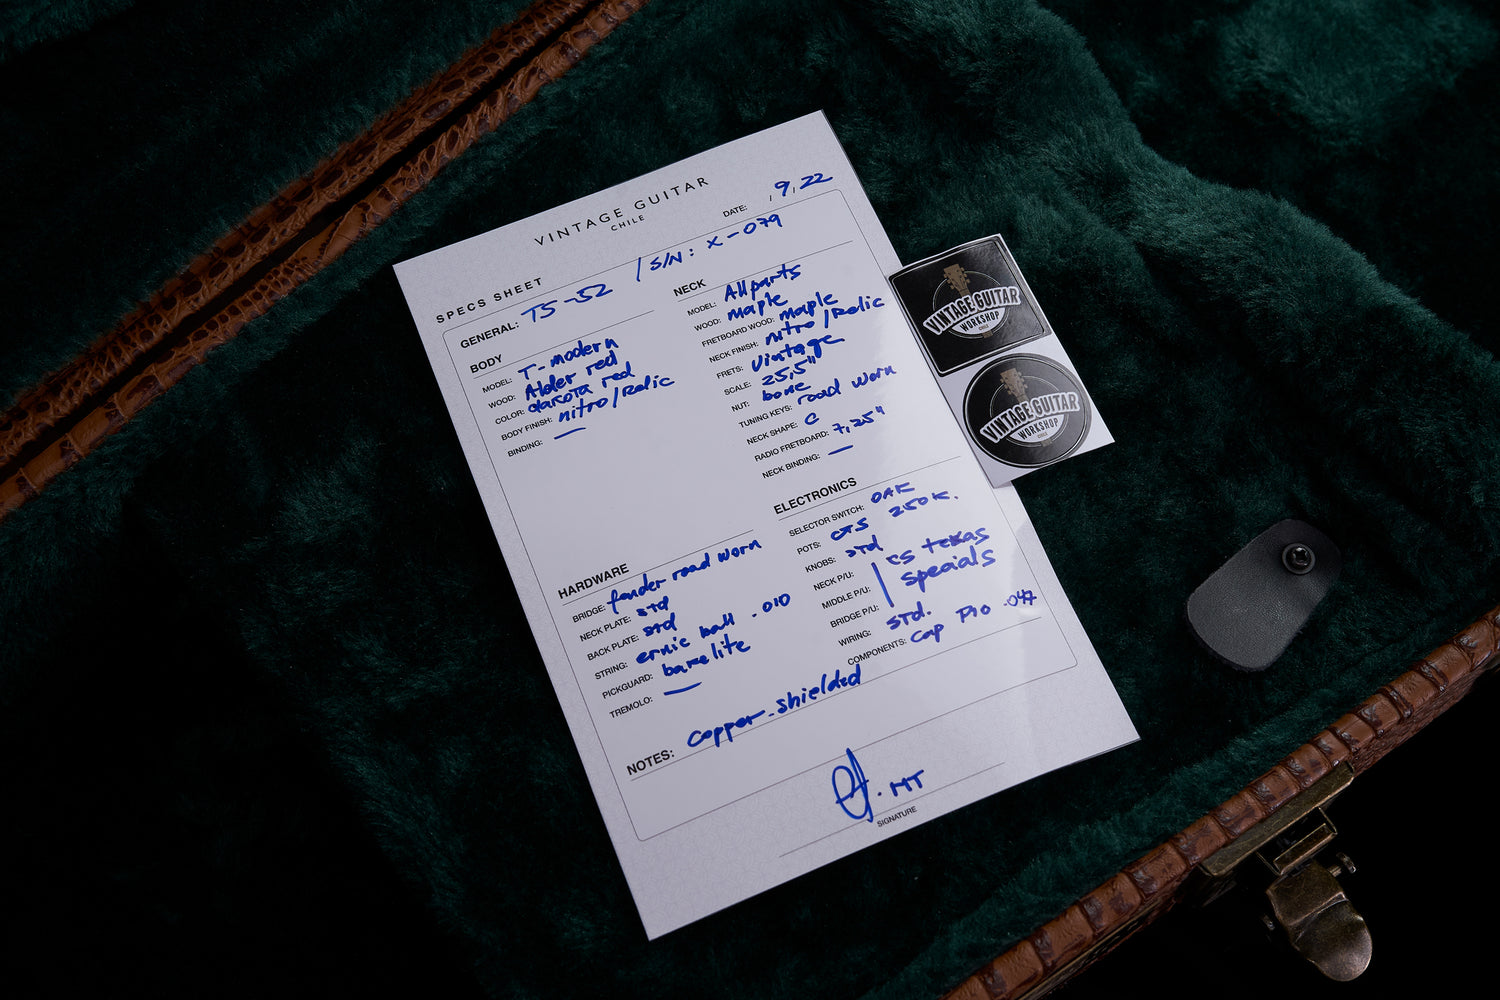 VINTAGE GUITAR
CHILE
DATE: , 9, 22
SPECS SHEET
GENERAL: TS-52 / S/N: X-079
BODY
MODEL: T-modern
WOOD: Alder red
COLOR: dakota red
BODY FINISH: nitro/Relic
BINDING: —
NECK
MODEL: Allparts
WOOD: maple
FRETBOARD WOOD: maple
NECK FINISH: nitro/Relic
FRETS: Vintage
SCALE: 25,5"
NUT: bone
TUNING KEYS: road worn
NECK SHAPE: C
RADIO FRETBOARD: 7,25"
NECK BINDING: —
HARDWARE
BRIDGE: fender road worn
NECK PLATE: std
BACK PLATE: std
STRING: ernie ball .010
PICKGUARD: bakelite
TREMOLO: —
ELECTRONICS
SELECTOR SWITCH: OAK
POTS: CTS 250K.
KNOBS: std
NECK P/U: cs texas
MIDDLE P/U: specials
BRIDGE P/U:
WIRING: STD.
COMPONENTS: Cap Pio .047
NOTES: copper-shielded
MT
SIGNATURE
VINTAGE GUITAR
WORKSHOP
CHILE
VINTAGE GUITAR
WORKSHOP
CHILE